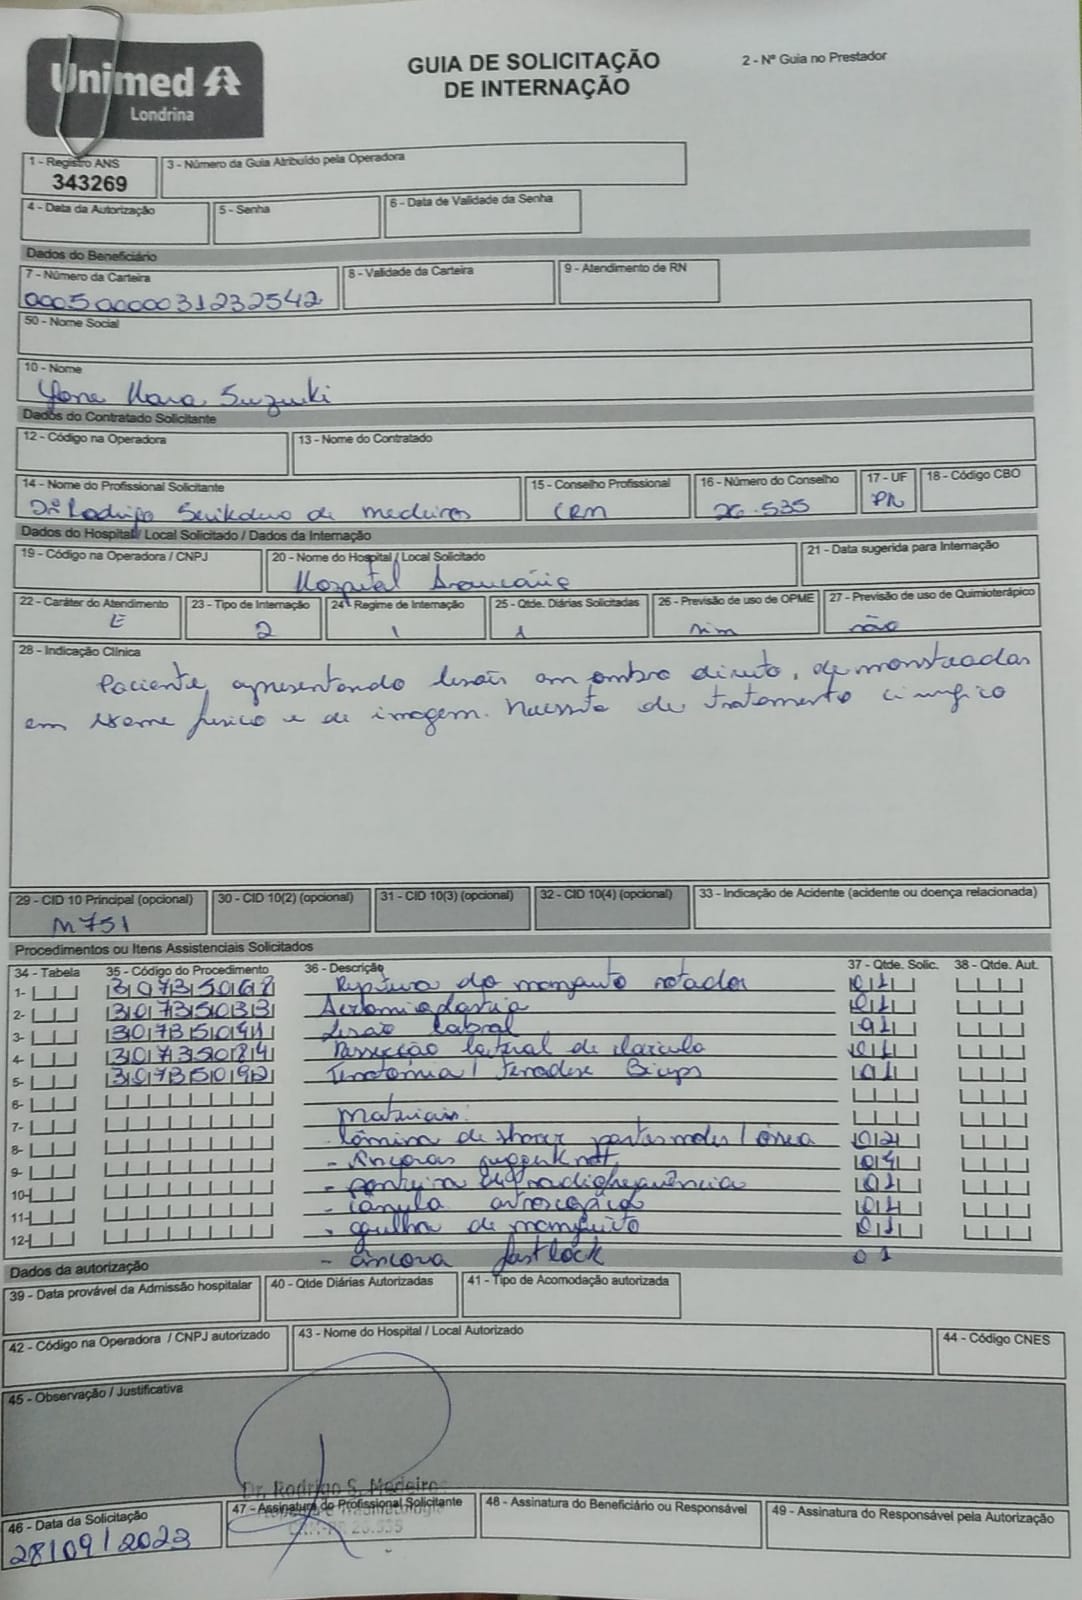 Unimed
Londrina
GUIA DE SOLICITAÇÃO
DE INTERNAÇÃO
2 - Nº Guia no Prestador
1 - Registro ANS
343269
3 - Número da Guia Atribuído pela Operadora
4 - Data da Autorização
5 - Senha
6 - Data de Validade da Senha
Dados do Beneficiário
7 - Número da Carteira
00050000031232542
8 - Validade da Carteira
9 - Atendimento de RN
50 - Nome Social
10 - Nome
Yone Mara Suzuki
Dados do Contratado Solicitante
12 - Código na Operadora
13 - Nome do Contratado
14 - Nome do Profissional Solicitante
Dr. Rodrigo de medeiros
15 - Conselho Profissional
CRM
16 - Número do Conselho
26.535
17 - UF
PR
18 - Código CBO
Dados do Hospital / Local Solicitado / Dados da Internação
19 - Código na Operadora / CNPJ
20 - Nome do Hospital / Local Solicitado
Hospital Araucária
21 - Data sugerida para Internação
22 - Caráter do Atendimento
E
23 - Tipo de Internação
2
24 - Regime de Internação
1
25 - Qtde. Diárias Solicitadas
1
26 - Previsão de uso de OPME
sim
27 - Previsão de uso de Quimioterápico
não
28 - Indicação Clínica
Paciente apresentando lesões em ombro direito, demonstradas
em exame fisico e de imagem. Necessita de tratamento cirurgico
29 - CID 10 Principal (opcional)
M751
30 - CID 10(2) (opcional)
31 - CID 10(3) (opcional)
32 - CID 10(4) (opcional)
33 - Indicação de Acidente (acidente ou doença relacionada)
Procedimentos ou Itens Assistenciais Solicitados
34 - Tabela 35 - Código do Procedimento 36 - Descrição 37 - Qtde. Solic. 38 - Qtde. Aut.
1- 30735068 Ruptura do manguito rotador 01
2- 30735033 Acromioplastia 01
3- 30735041 Lesão labral 01
4- 30735084 Ressecção lateral de clavicula 01
5- 30735092 Tenotomia / Tenodese Biceps 01
6-
7- Materiais:
8- - lâmina de shaver partes moles / óssea 02
9- - Âncoras 04
10- - ponteira de radiofrequência 01
11- - cânula artroscópica 04
12- - agulha de manguito 01
- âncora fastlock 01
Dados da autorização
39 - Data provável da Admissão hospitalar
40 - Qtde Diárias Autorizadas
41 - Tipo de Acomodação autorizada
42 - Código na Operadora / CNPJ autorizado
43 - Nome do Hospital / Local Autorizado
44 - Código CNES
45 - Observação / Justificativa
Dr. Rodrigo S. Medeiros
46 - Data da Solicitação
28/09/2023
47 - Assinatura do Profissional Solicitante
48 - Assinatura do Beneficiário ou Responsável
49 - Assinatura do Responsável pela Autorização